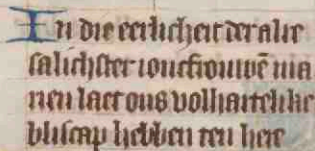 In die eerlicheit der alre
salichster ioncfrouwē ma
rien laet ons volhartelike
bliscap hebben ten here